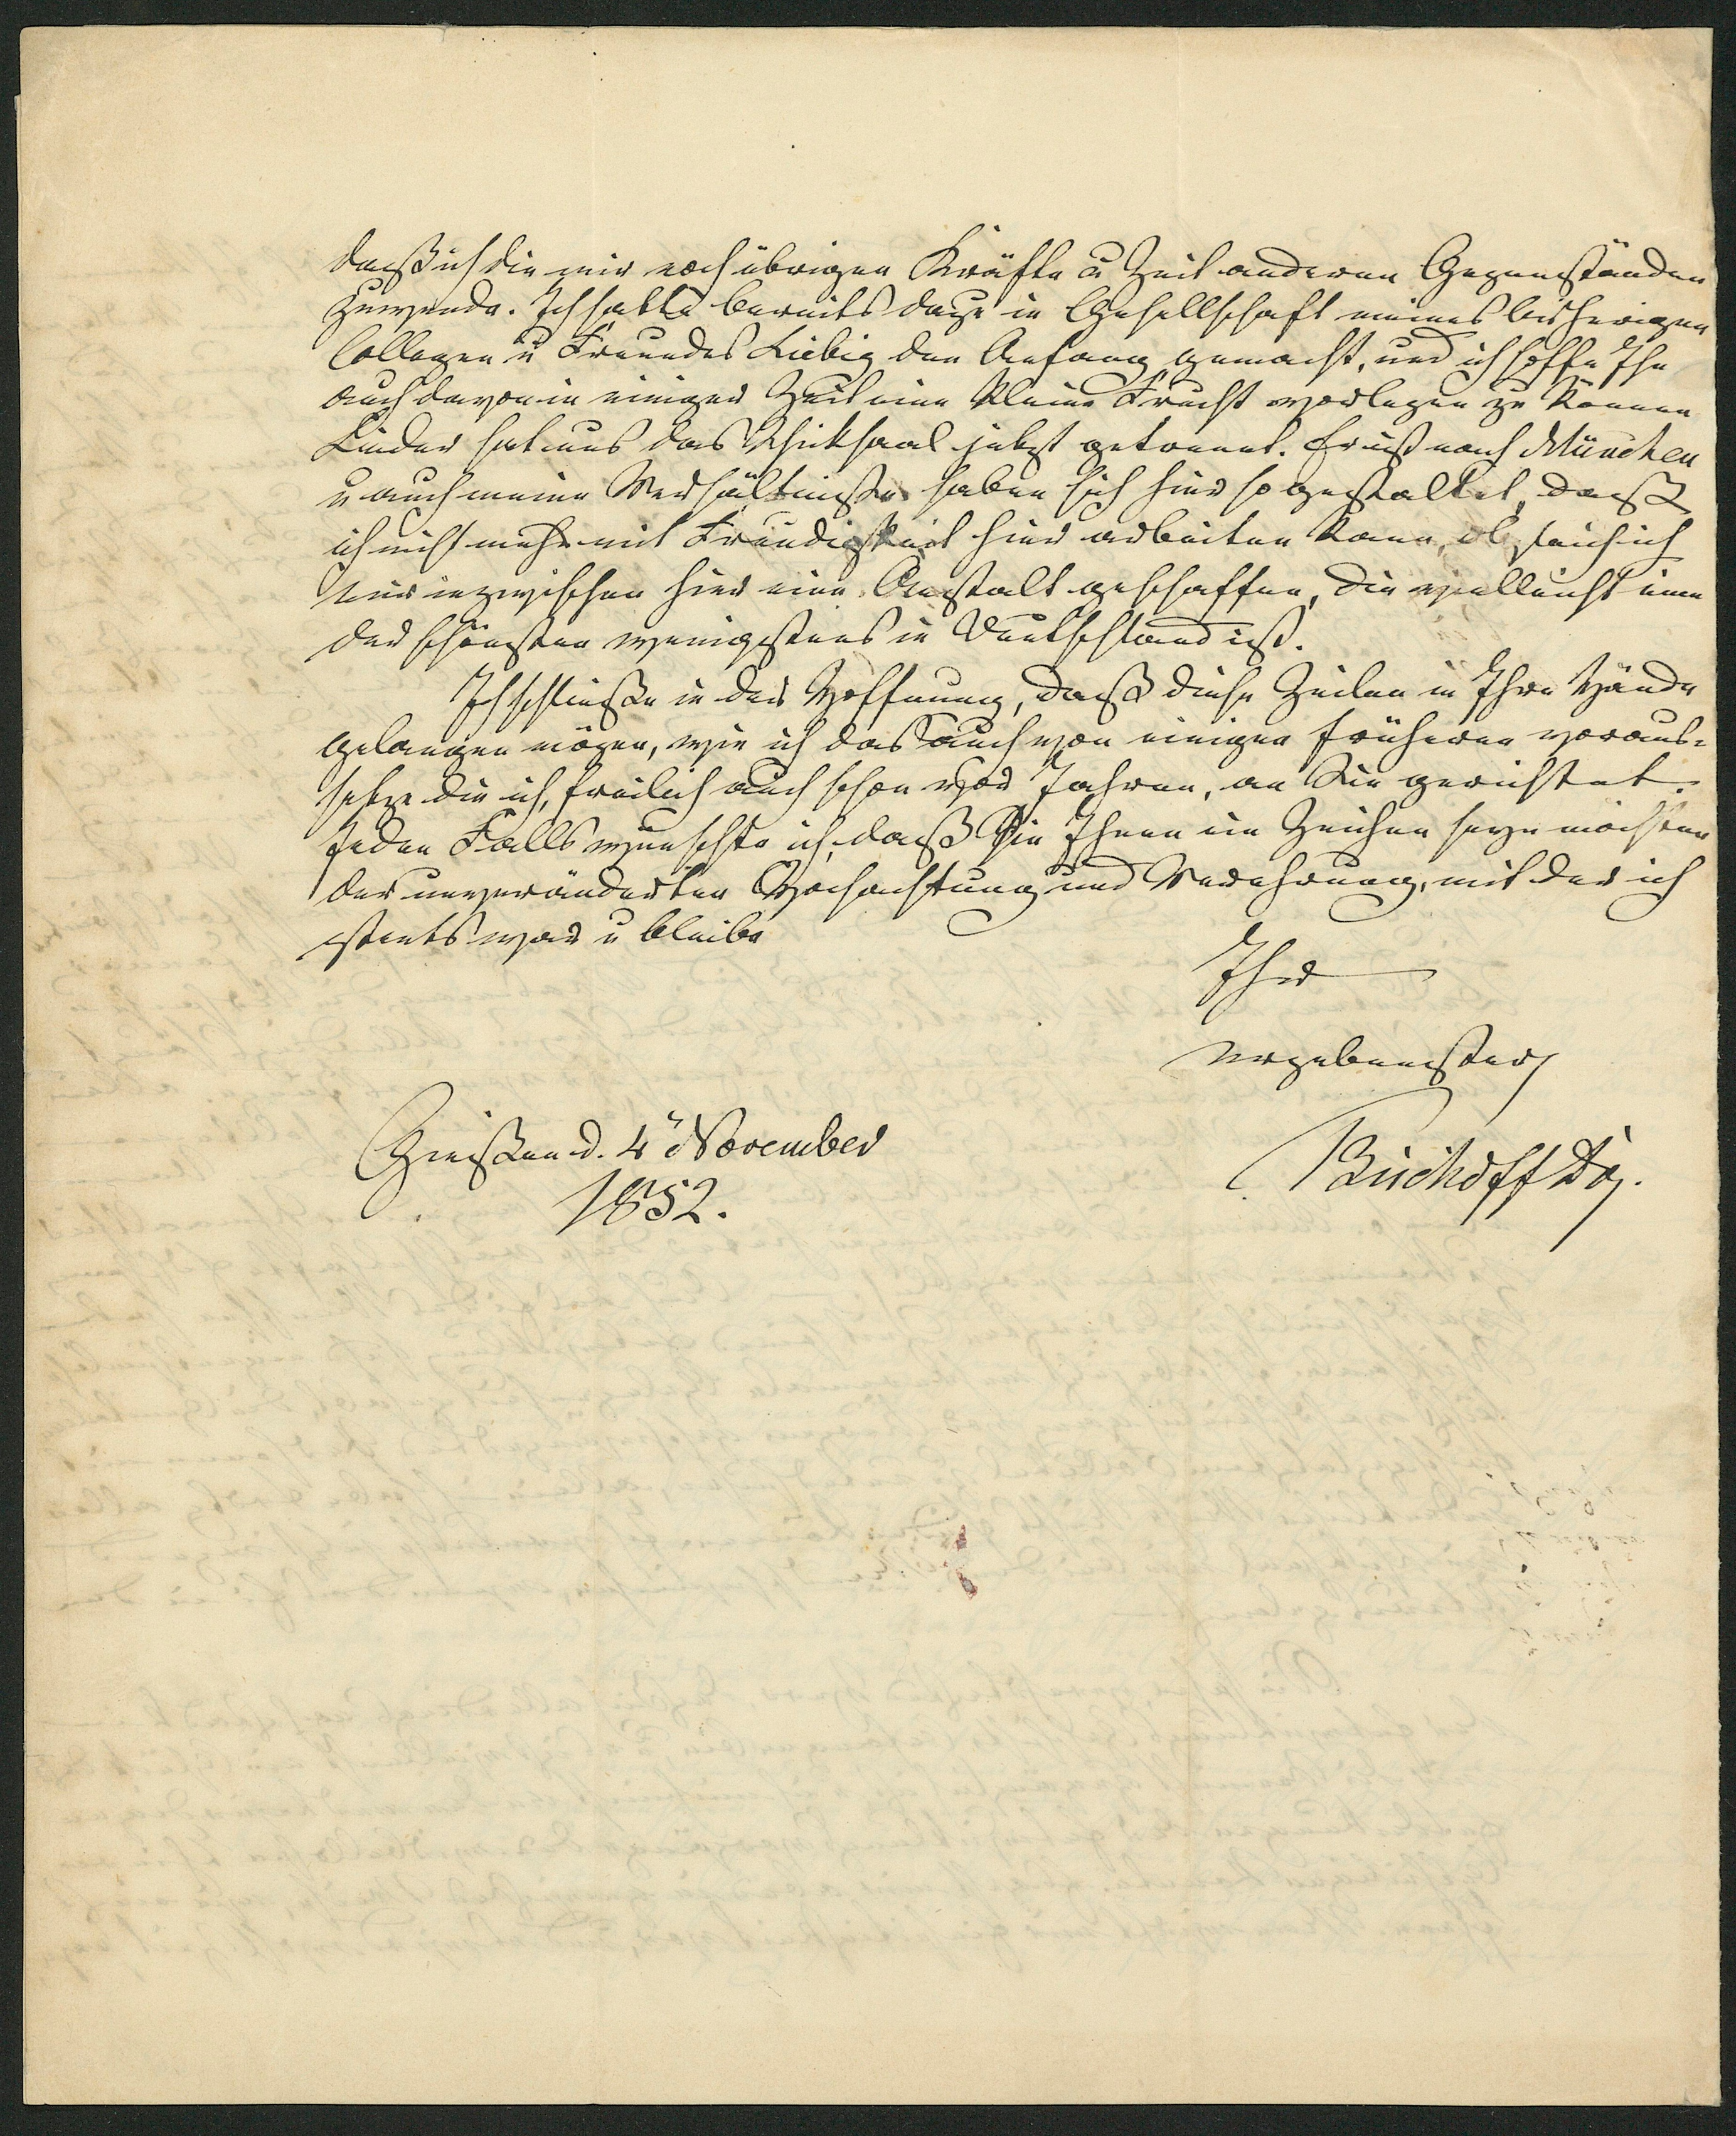 daß ich die mir noch übrigen Kräfte u Zeit anderen Gegenständen
zuwende. Ich hatte bereits dazu in Gesellschaft meines bisherigen
Collegen u Freundes Liebig den Anfang gemacht, und ich hoffe Ihn
auch davon in einiger Zeit eine kleine Frucht vorlegen zu können
Leider hat uns das Schicksaal jetzt getrennt. Er ist nach München
u auch meine Verhältniße haben sich hier so gestaltet, daß
ich nicht mehr mit Freudigkeit hier arbeiten kann, obgleich ich
mir inzwischen hier eine Anstalt geschaffen, die vielleicht eine
der schönsten wenigstens in Deutschland ist.
Ich schließe in der Hoffnung, daß diese Zeilen in Ihre Hände
gelangen mögen, wie ich das auch von einigen früheren voraus-
setze die ich, freilich auch schon vor Jahren, an Sie gerichtet.
Jeden Falls wünschte ich, daß Sie Ihnen ein Zeichen seyn möchten
der unveränderten Hochachtung und Verehrung, mit der ich
stets war u bleibe
Ihr
ergebenster
Gießen d. 4 November
1852.
Bischoff